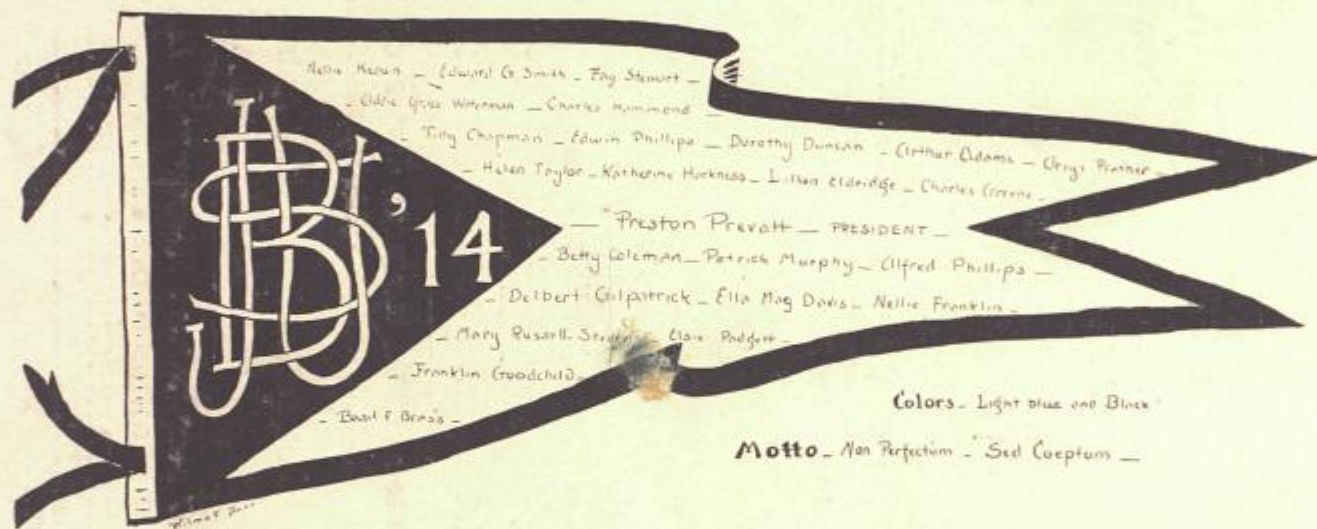 Nellie — Edward G Smith — Fay Stewart —
— Addie Waterman — Charles Hammond
— Tilly Chapman — Edwin Phillips — Dorothy Duncan — Arthur Adams —
— Helen Taylor — Katherine Harkness — Lillian Eldridge — Charles Greene —
'14
— "Preston Prevatt — PRESIDENT —
— Betty Coleman — Patrick Murphy — Alfred Phillips —
— Delbert Gilpatrick — Ella May Davis — Nellie Franklin —
— Mary Russell — Padgett —
— Franklin Goodchild —
Colors — Light blue and Black
— Basil F Brass
Motto — Non Perfectum — Sed Coeptum —